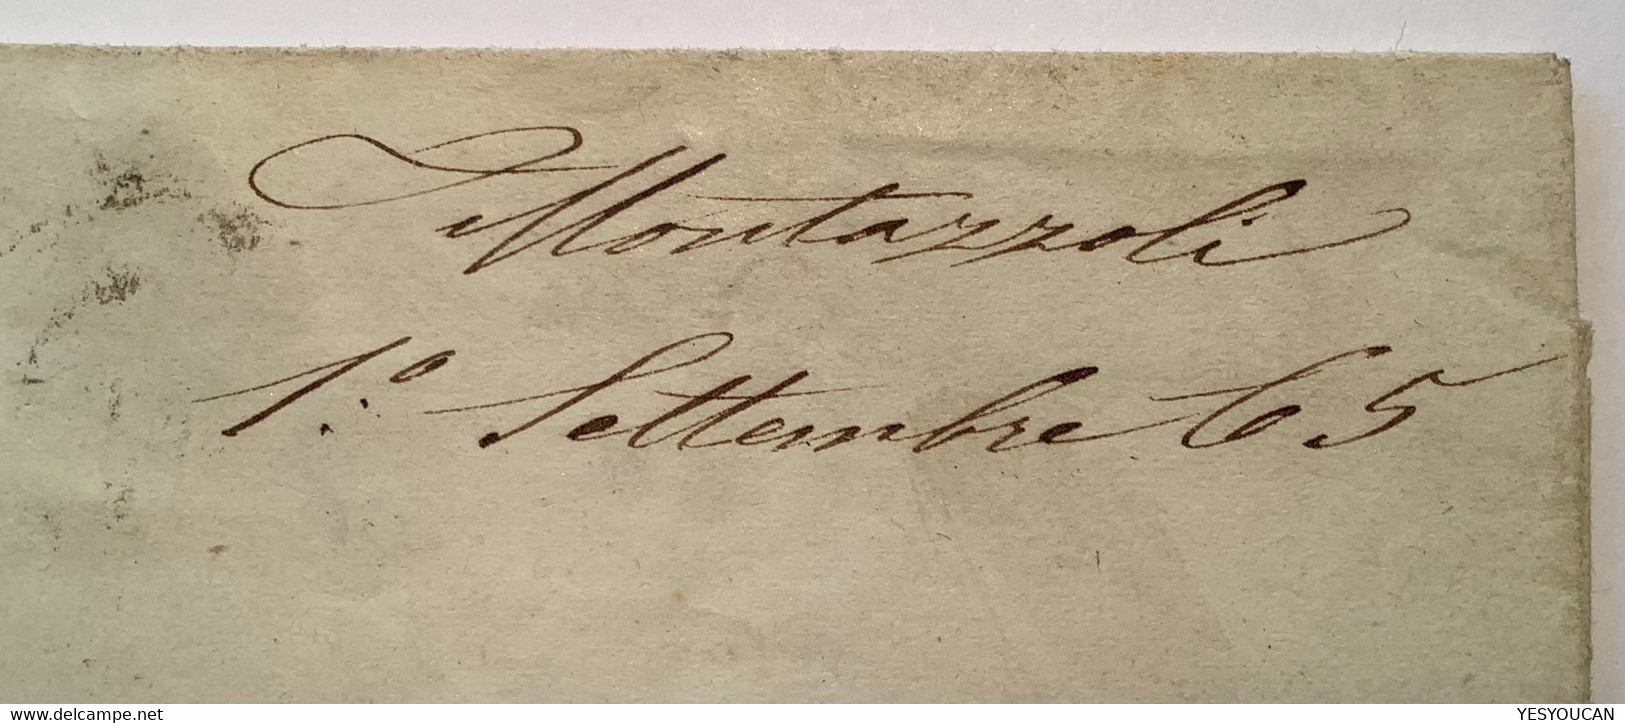 Montazzoli
1º Settembre 65
www.delcampe.net
YESYOUCAN